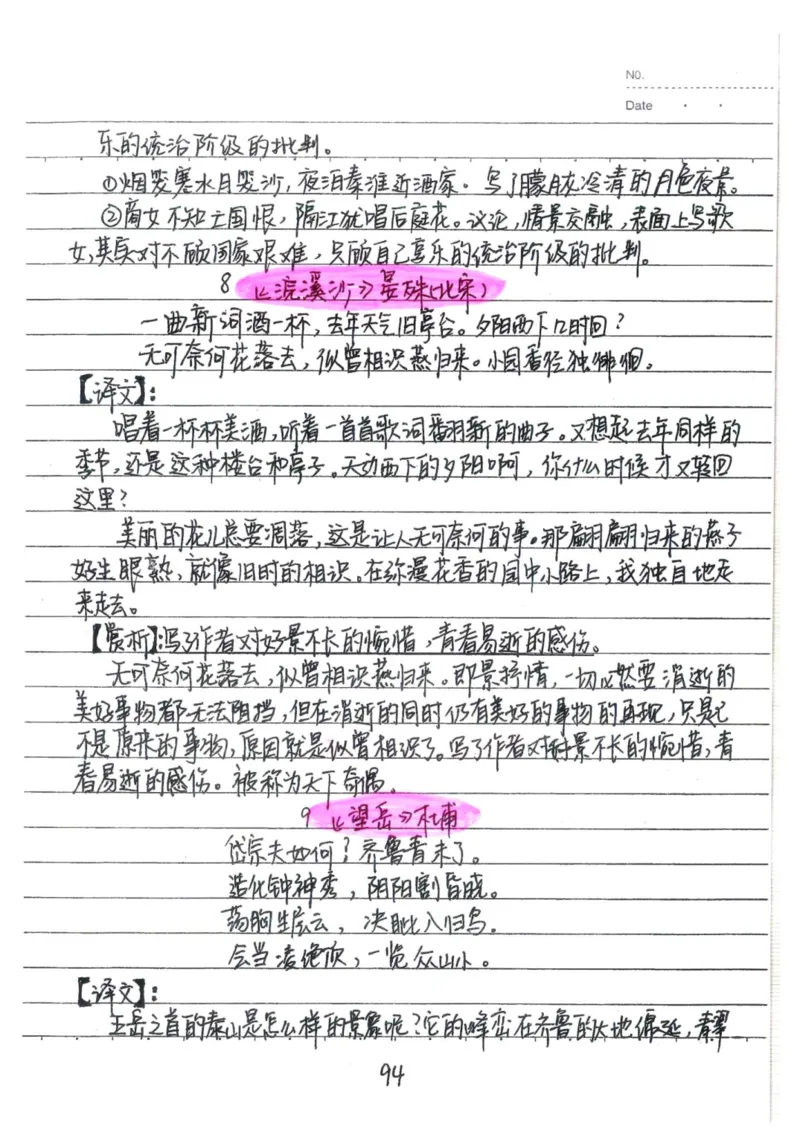 NO.
Date
乐的统治阶级的批判。
①烟笼寒水月笼沙,夜泊秦淮近酒家。写了朦胧冷清的月色夜景。
②商女不知亡国恨,隔江犹唱后庭花。议论,情景交融,表面上写歌
女,其实对不顾国家艰难,只顾自己享乐的统治阶级的批判。
8 《浣溪沙》晏殊(北宋)
一曲新词酒一杯,去年天气旧亭台。夕阳西下几时回?
无可奈何花落去,似曾相识燕归来。小园香径独徘徊。
【译文】:
唱着一杯杯美酒,听着一首首歌词翻新的曲子。又想起去年同样的
季节,还是这种楼台和亭子。天边西下的夕阳啊,你什么时候才又轻回
这里?
美丽的花儿总要凋落,这是让人无可奈何的事。那翩翩归来的燕子
好生眼熟,就像旧时的相识。在弥漫花香的园中小路上,我独自地走
来走去。
【赏析】:写了作者对好景不长的惋惜,青春易逝的感伤。
无可奈何花落去,似曾相识燕归来。即景抒情,一切必然要消逝的
美好事物都无法阻挡,但在消逝的同时仍有美好的事物的再现,只是已
不是原来的事物,原因就是似曾相识了。写了作者对好景不长的惋惜,青
春易逝的感伤。被称为天下奇偶。
9 《望岳》杜甫
岱宗夫如何?齐鲁青未了。
造化钟神秀,阴阳割昏晓。
荡胸生层云,决眦入归鸟。
会当凌绝顶,一览众山小。
【译文】:
五岳之首的泰山是怎么样的景象呢?它的峰峦在齐鲁的大地绵延,青翠
94